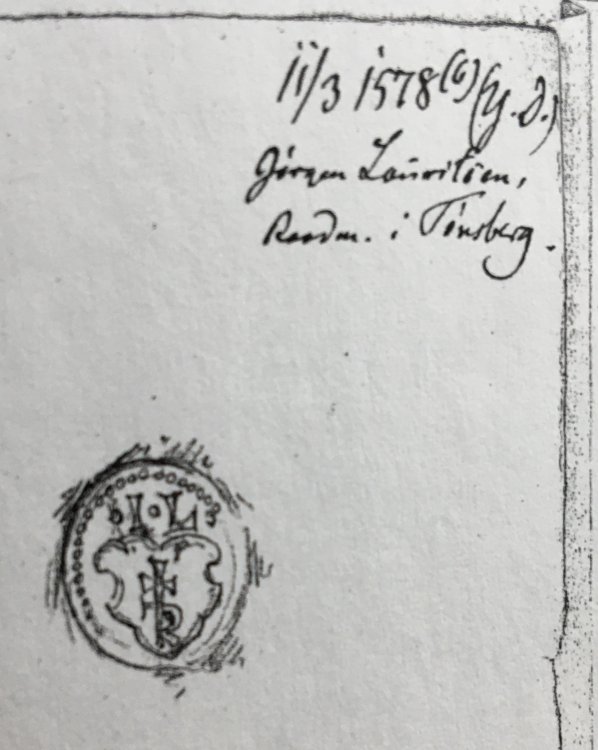 11/3 1578 (6) (Y. D.)
Jørgen Lauritsen,
Raadm. i Tønsberg.
I·L